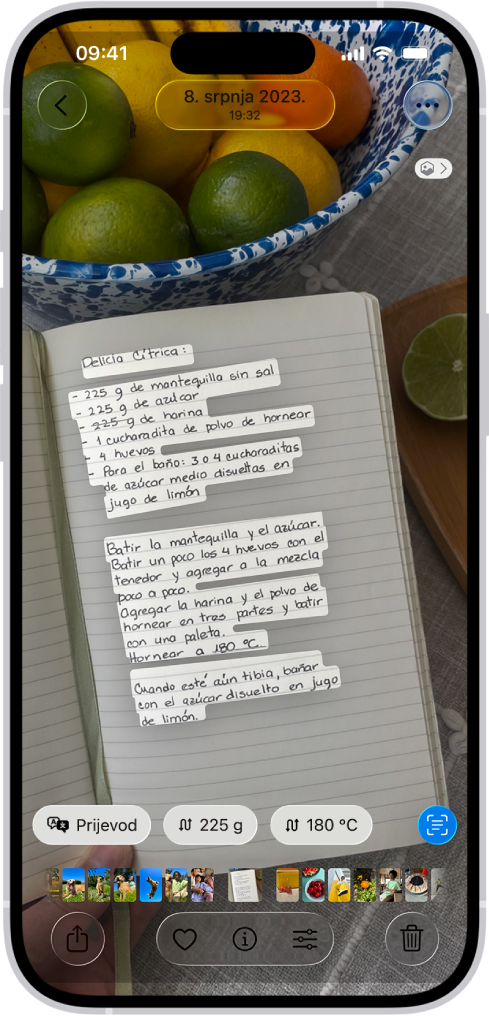 09:41
8. srpnja 2023.
19:32
Delicia Cítrica:
- 225 g de mantequilla sin sal
- 225 g de azúcar
- 225 g de harina
- 1 cucharadita de polvo de hornear
- 4 huevos
- Para el baño: 3 o 4 cucharaditas
de azúcar medio disueltas en
jugo de limón
Batir la mantequilla y el azúcar.
Batir un poco los 4 huevos con el
tenedor y agregar a la mezcla
poco a poco.
Agregar la harina y el polvo de
hornear en tres partes y batir
con una paleta.
Hornear a 180 °C.
Cuando esté aún tibia, bañar
con el azúcar disuelto en jugo
de limón.
Prijevod
225 g
180 °C